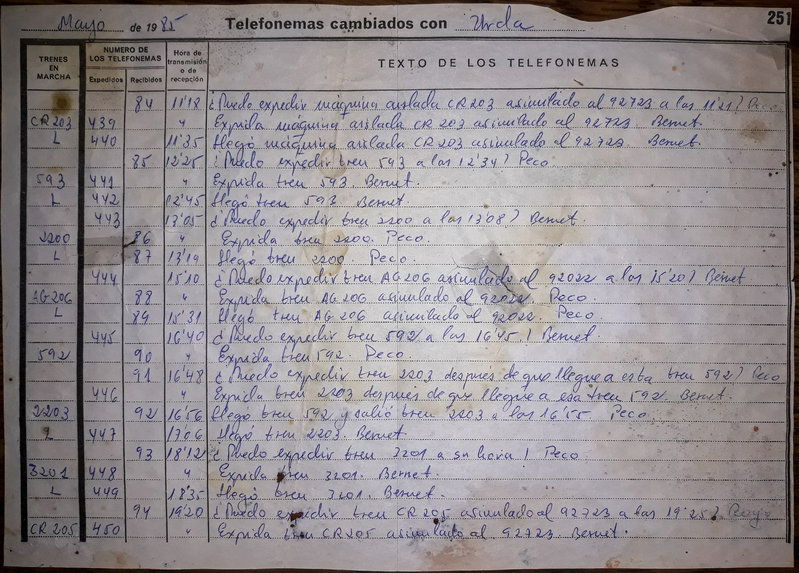 Mayo de 1985 Telefonemas cambiados con Urda 251
TRENES EN MARCHA NUMERO DE LOS TELEFONEMAS Expedidos Recibidos Hora de transmisión o de recepción TEXTO DE LOS TELEFONEMAS
84 11'18 ¿Puedo expedir máquina aislada CR203 asimilado al 92723 a las 11'21? Peco
CR203 439 " Expida máquina aislada CR 203 asimilado al 92723. Bernet
L 440 11'35 Llegó máquina aislada CR203 asimilado al 92723. Bernet.
85 12'25 ¿Puedo expedir tren 593 a las 12'34? Peco
593 441 " Expida tren 593. Bernet.
L 442 12'45 Llegó tren 593. Bernet.
443 13'05 ¿Puedo expedir tren 2200 a las 13'08? Bernet.
2200 86 " Expida tren 2200. Peco.
L 87 13'19 Llegó tren 2200. Peco.
444 15'10 ¿Puedo expedir tren AG206 asimilado al 92022 a las 15'20? Bernet
AG-206 88 " Expida tren AG206 asimilado al 92022. Peco.
L 89 15'31 Llegó tren AG 206 asimilado al 92022. Peco
445 16'40 ¿Puedo expedir tren 592 a las 16'45? Bernet
592 90 " Expida tren 592. Peco.
91 16'48 ¿Puedo expedir tren 2203 después de que llegue a esta tren 592? Peco
446 " Expida tren 2203 después de que llegue a esa tren 592. Bernet.
2203 92 16'56 Llegó tren 592 y salió tren 2203 a las 16'55. Peco.
L 447 17'06 Llegó tren 2203. Bernet.
93 18'12 ¿Puedo expedir tren 3201 a su hora? Peco
3201 448 " Expida tren 3201. Bernet.
L 449 18'35 Llegó tren 3201. Bernet.
94 19'20 ¿Puedo expedir tren CR205 asimilado al 92723 a las 19'25?
CR205 450 " Expida tren CR205 asimilado al 92723. Bernet.